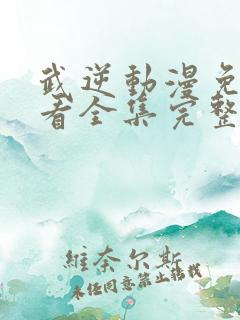 武逆動漫免
看全集完整
維奈尔斯
未经同意禁止转载